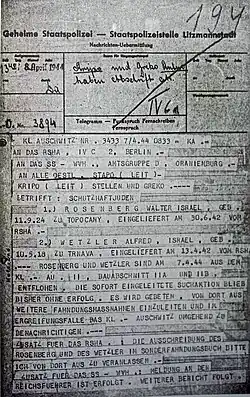 194
Geheime Staatspolizei — Staatspolizeistelle Litzmannstadt
Nachrichten-Uebermittlung
8. April 1944
und Greko
haben Abschrift
IV 6a
3894
Telegramm — Funkspruch Fernschreiben
Fernspruch
KL AUSCHWITZ NR. 3433 7/4.44 0833 = KA. =
AN DAS RSHA, IV C 2, BERLIN. =
AN DAS SS - WVH, AMTSGRUPPE D, ORANIENBURG. =
AN ALLE OESTL. STAPO (LEIT) -
KRIPO (LEIT) STELLEN UND GREKO. =
BETRIFFT: SCHUTZHAFTJUDEN
1.) ROSENBERG, WALTER ISRAEL, GEB.
11.9.24 ZU TOPOCANY, EINGELIEFERT AM 30.6.42 VON
RSHA.
2.) WETZLER ALFRED, ISRAEL, GEB.
10.5.18 ZU TRNAVA, EINGELIEFERT AM 13.4.42 VOM RSHA
ROSENBERG UND WETZLER SIND AM 7.4.44 AUS DEM
KL. - AU. II, BAUABSCHNITT IIA UND IIB
ENTFLOHEN. DIE SOFORT EINGELEITETE SUCHAKTION BLIEB
BISHER OHNE ERFOLG. ES WIRD GEBETEN, VON DORT AUS
WEITERE FAHNDUNGSMASSNAHMEN EINZULEITEN UND IM
ERGREIFUNGSFALLE DAS KL. - AUSCHWITZ UMGEHEND ZU
BENACHRICHTIGEN.
ZUSATZ FUER DAS RSHA: DIE AUSSCHREIBUNG DES
ROSENBERG UND DES WETZLER IM SONDERFAHNDUNGSBUCH BITTE
ICH VON DORT AUS ZU VERANLASSEN.
ZUSATZ FUER DAS SS. - WVH.: MELDUNG AN DEN
REICHSFUEHRER IST ERFOLGT. WEITERER BERICHT FOLGT